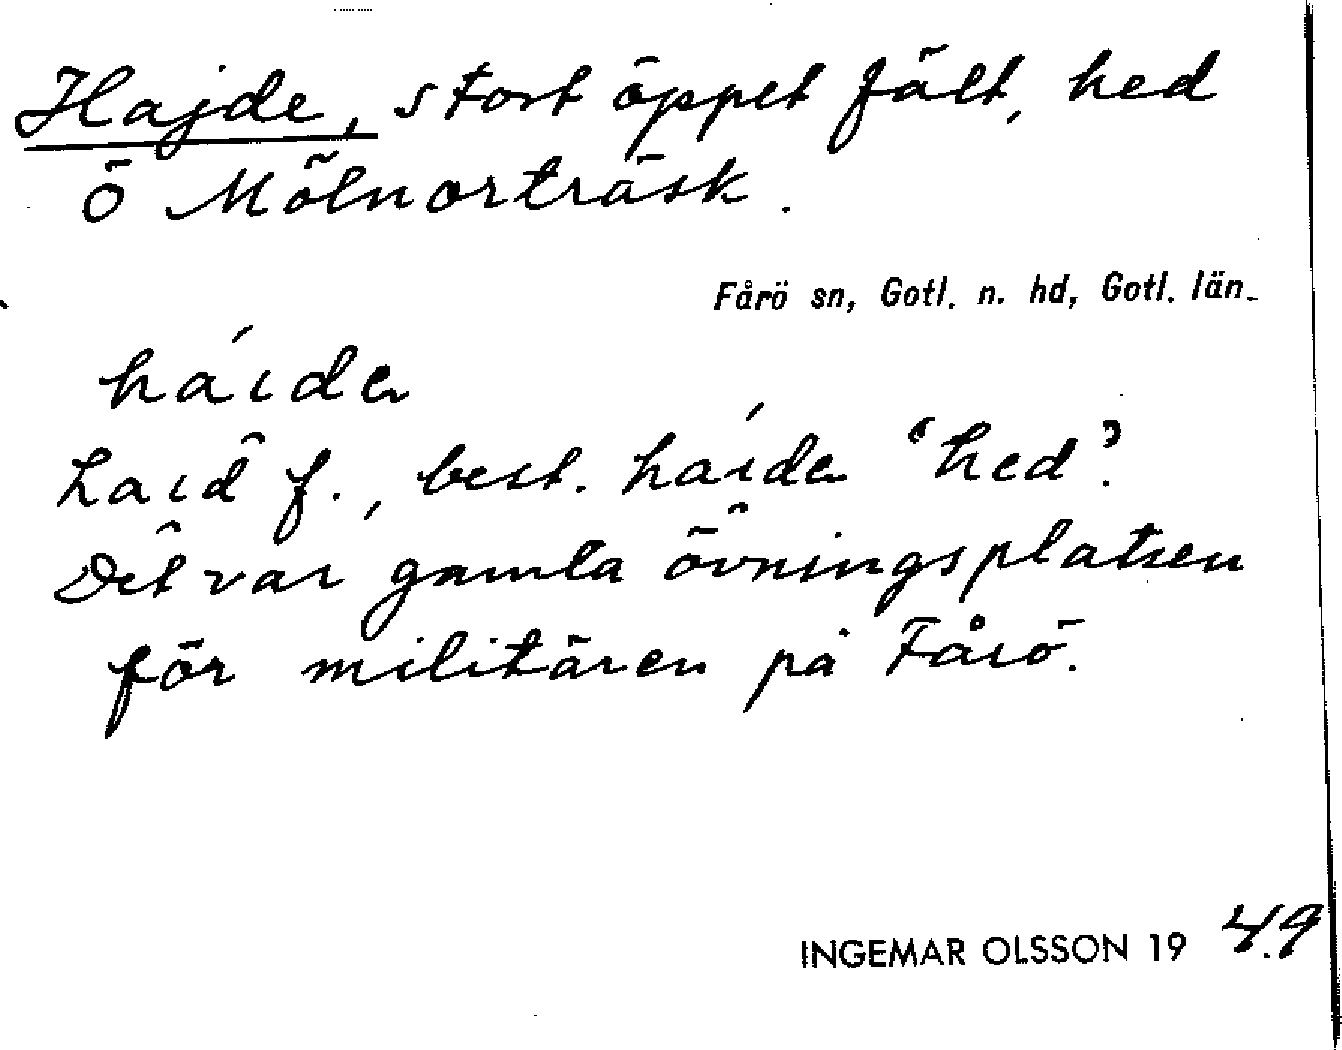 Hajde, stort öppet fält, hed
Ö Mölnorträsk.
Fårö sn, Gotl. n. hd, Gotl. län.
háıdꬲ
haıd̂ f., best. háıdꬲ "hed".
Det var gamla övningsplatsen
för militären på Fårö.
INGEMAR OLSSON 19 49